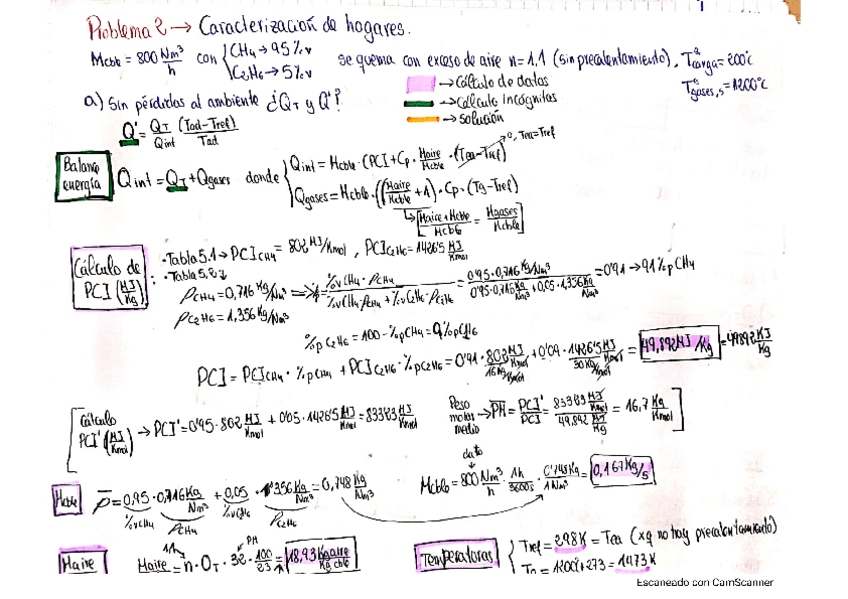 Problema 2 → Caracterización de hogares.
Mcble = 800 Nm³/h con { CH4 → 95 %v se quema con exceso de aire n=1,1 (sin precalentamiento), Tªcarga = 200ºC
C2H6 → 5 %v Tªgases,s = 1200ºC
a) Sin pérdidas al ambiente ¿QT y Q'?
→ Cálculo de datos
→ Cálculo Incógnitas
→ Solución
Q' = QT/Qint (Tad-Tref)/Tad
Balance energía
Qint = QT + Qgases donde { Qint = Mcble · (PCI + Cp · Maire/Mcble · (Tea - Tref) 0, Tea=Tref
Qgases = Mcble · ((Maire/Mcble + 1) · Cp · (Tg - Tref)
↳ [Maire + Mcble / Mcble = Mgases / Mcble]
Cálculo de PCI (MJ/Kg) :
· Tabla 5.1 → PCI CH4 = 802 MJ/Kmol , PCI C2H6 = 1426'5 MJ/Kmol
· Tabla 5.2
ρCH4 = 0,716 Kg/Nm³ ⇒ %vCH4 · ρCH4 / %vCH4 · ρCH4 + %vC2H6 · ρC2H6 = 0'95 · 0,716 Kg/Nm³ / 0'95 · 0,716 Kg/Nm³ + 0,05 · 1,356 Kg/Nm³ = 0'91 → 91 %p CH4
ρC2H6 = 1,356 Kg/Nm³
%p C2H6 = 100 - %p CH4 = 9 %p C2H6
PCI = PCI CH4 · %p CH4 + PCI C2H6 · %p C2H6 = 0'91 · 802 MJ/Kmol / 16 Kg/Kmol + 0'09 · 1426'5 MJ/Kmol / 30 Kg/Kmol = 49,892 MJ/Kg = 49892 KJ/Kg
[ Cálculo PCI' (MJ/Kmol) → PCI' = 0'95 · 802 MJ/Kmol + 0'05 · 1426'5 MJ/Kmol = 833'23 MJ/Kmol
Peso molar medio → PH = PCI'/PCI = 833'83 MJ/Kmol / 49,892 MJ/Kg = 16,7 Kg/Kmol ]
dato
Mcble ρ = 0,95 · 0,716 Kg/Nm³ + 0,05 · 1'356 Kg/Nm³ = 0,748 Kg/Nm³ Mcble = 800 Nm³/h · 1h/3600s · 0'748 Kg/1 Nm³ = 0,167 Kg/s
%vCH4 ρCH4 ρC2H6
Maire Maire = n · OT · 32 · 100/23 = 18,93 Kg aire/Kg cble
1,1 PH
Temperaturas { Tref = 298K = Tea (xq no hay precalentamiento)
= 1200 + 273 = 1473 K
Escaneado con CamScanner